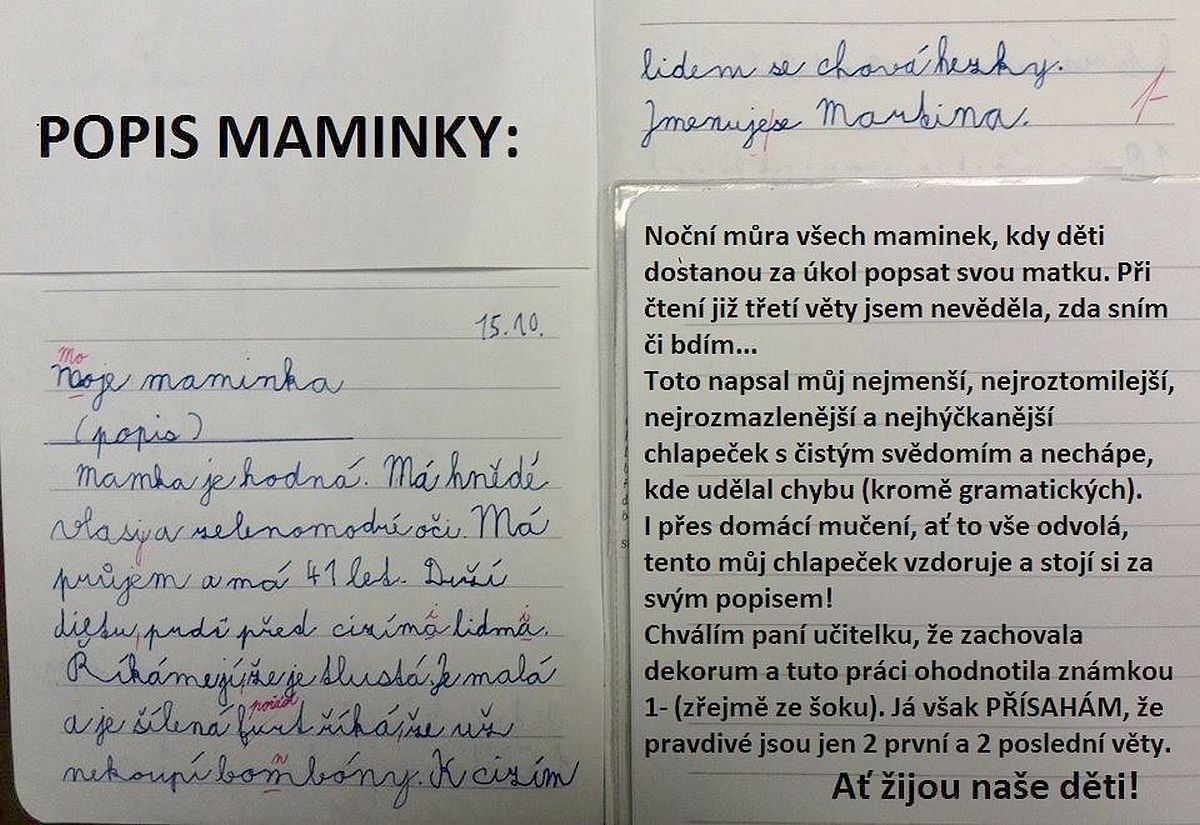 POPIS MAMINKY:
15.10.
Mo
Moje maminka
(popis)
Mamka je hodná. Má hnědé
vlasy a zelenomodré oči. Má
průjem a má 41 let. Duží
dietu, prdí před cizíma lidma.
i i
Říkáme jí, že je tlustá. Je malá
pořád
a je šílená furt říká, že už
n
nekoupí bombóny. K cizím
lidem se chová hezky.
Jmenuje se Martina.
1-
Noční můra všech maminek, kdy děti
dostanou za úkol popsat svou matku. Při
čtení již třetí věty jsem nevěděla, zda sním
či bdím...
Toto napsal můj nejmenší, nejroztomilejší,
nejrozmazlenější a nejhýčkanější
chlapeček s čistým svědomím a nechápe,
kde udělal chybu (kromě gramatických).
I přes domácí mučení, ať to vše odvolá,
tento můj chlapeček vzdoruje a stojí si za
svým popisem!
Chválím paní učitelku, že zachovala
dekorum a tuto práci ohodnotila známkou
1- (zřejmě ze šoku). Já však PŘÍSAHÁM, že
pravdivé jsou jen 2 první a 2 poslední věty.
Ať žijou naše děti!